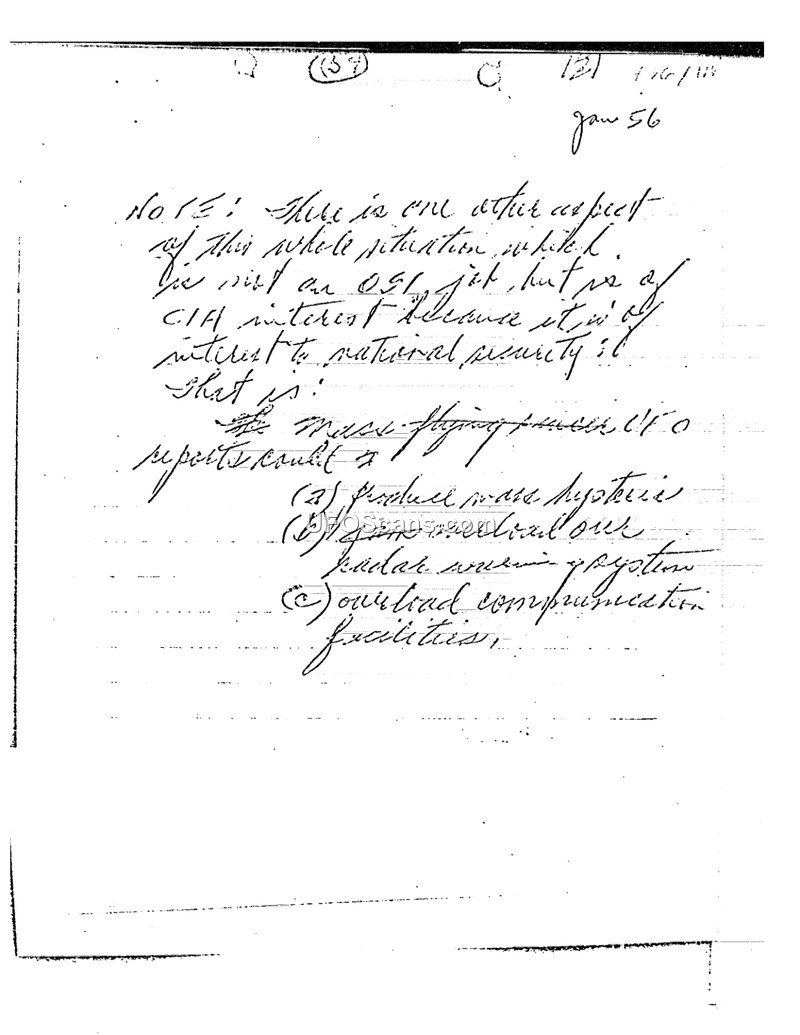 (59) C 131
Jan 56
NOTE: There is one other aspect
of this whole situation, which
is not an OSI job, but is of
CIA interest because it is of
interest to national security:
That is:
The Mass flying saucer UFO
reports could
(a) produce mass hysteria
(b) jam overload our
radar warning system
(c) overload communication
facilities.
UFOScans.com